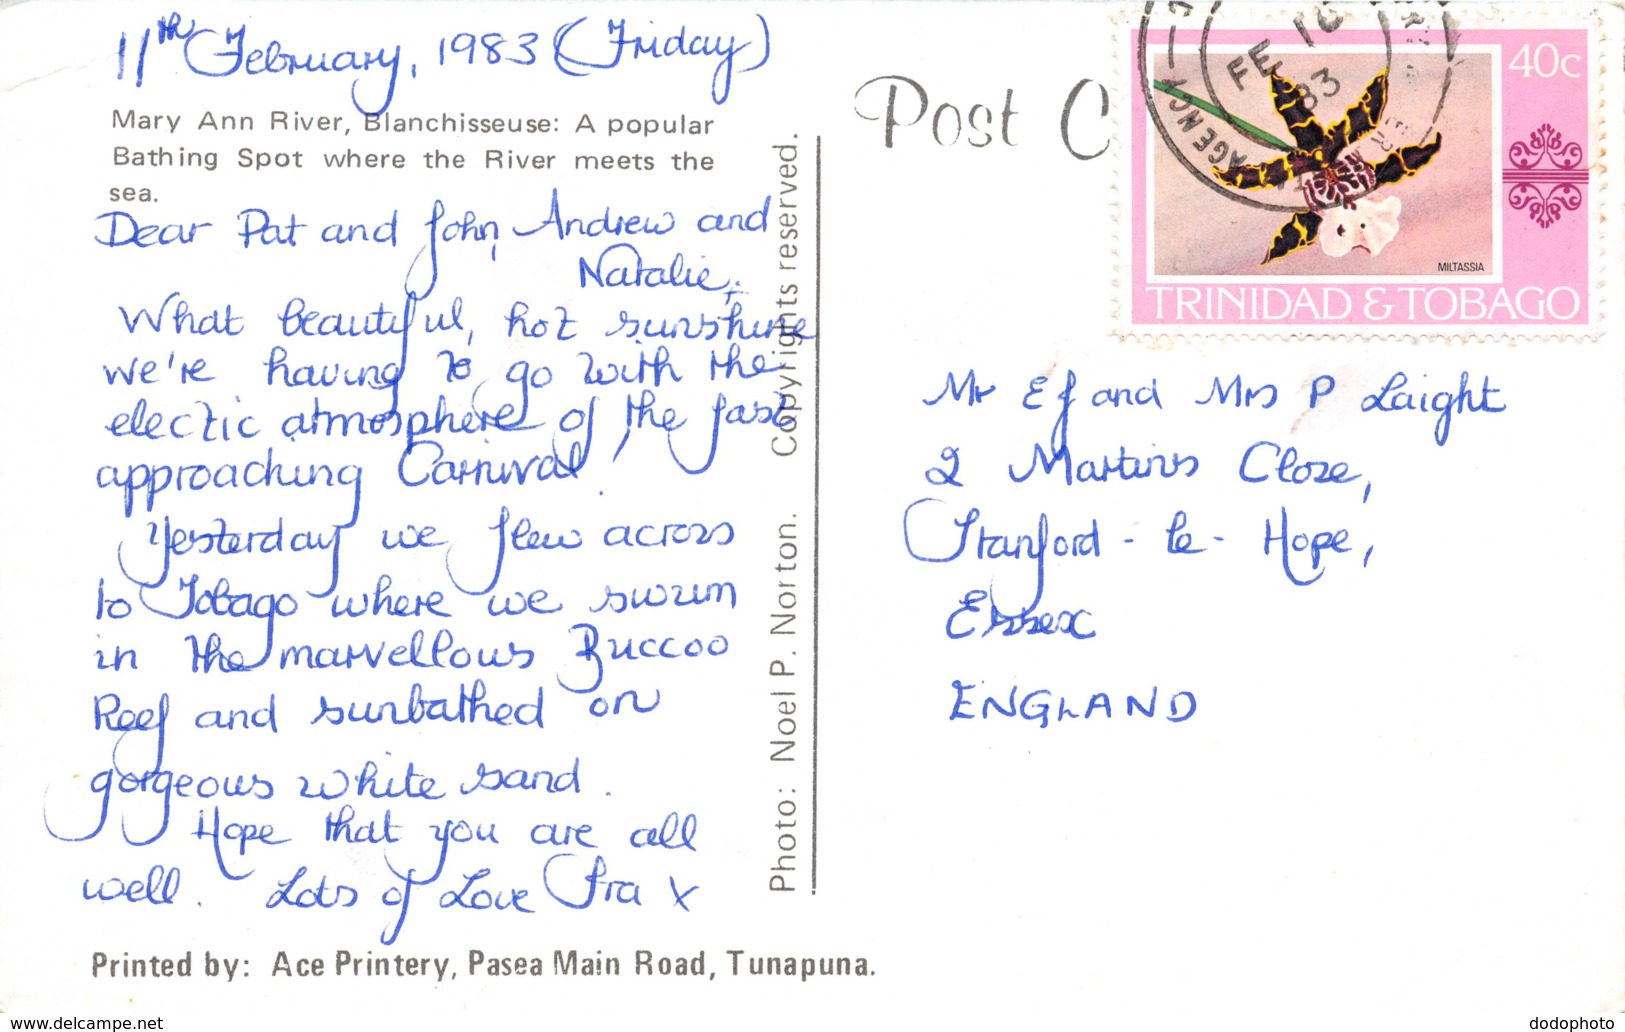 11th February, 1983 (Friday)
Mary Ann River, Blanchisseuse: A popular
Bathing Spot where the River meets the
sea.
Dear Pat and John, Andrew and
Natalie,
What beautiful, hot sunshine
we're having to go with the
electric atmosphere of the fast
approaching Carnival!
Yesterday we flew across
to Tobago where we swum
in the marvellous Buccoo
Reef and sunbathed on
gorgeous white sand.
Hope that you are all
well. Lots of Love Fra X
Printed by: Ace Printery, Pasea Main Road, Tunapuna.
Photo: Noel P. Norton. Copyrights reserved.
Post C
AGENCY
FE 10
83
40c
MILTASSIA
TRINIDAD & TOBAGO
Mr and Mrs P Laight
2 Martins Close,
Stanford-le-Hope,
Essex
ENGLAND
www.delcampe.net
dodophoto